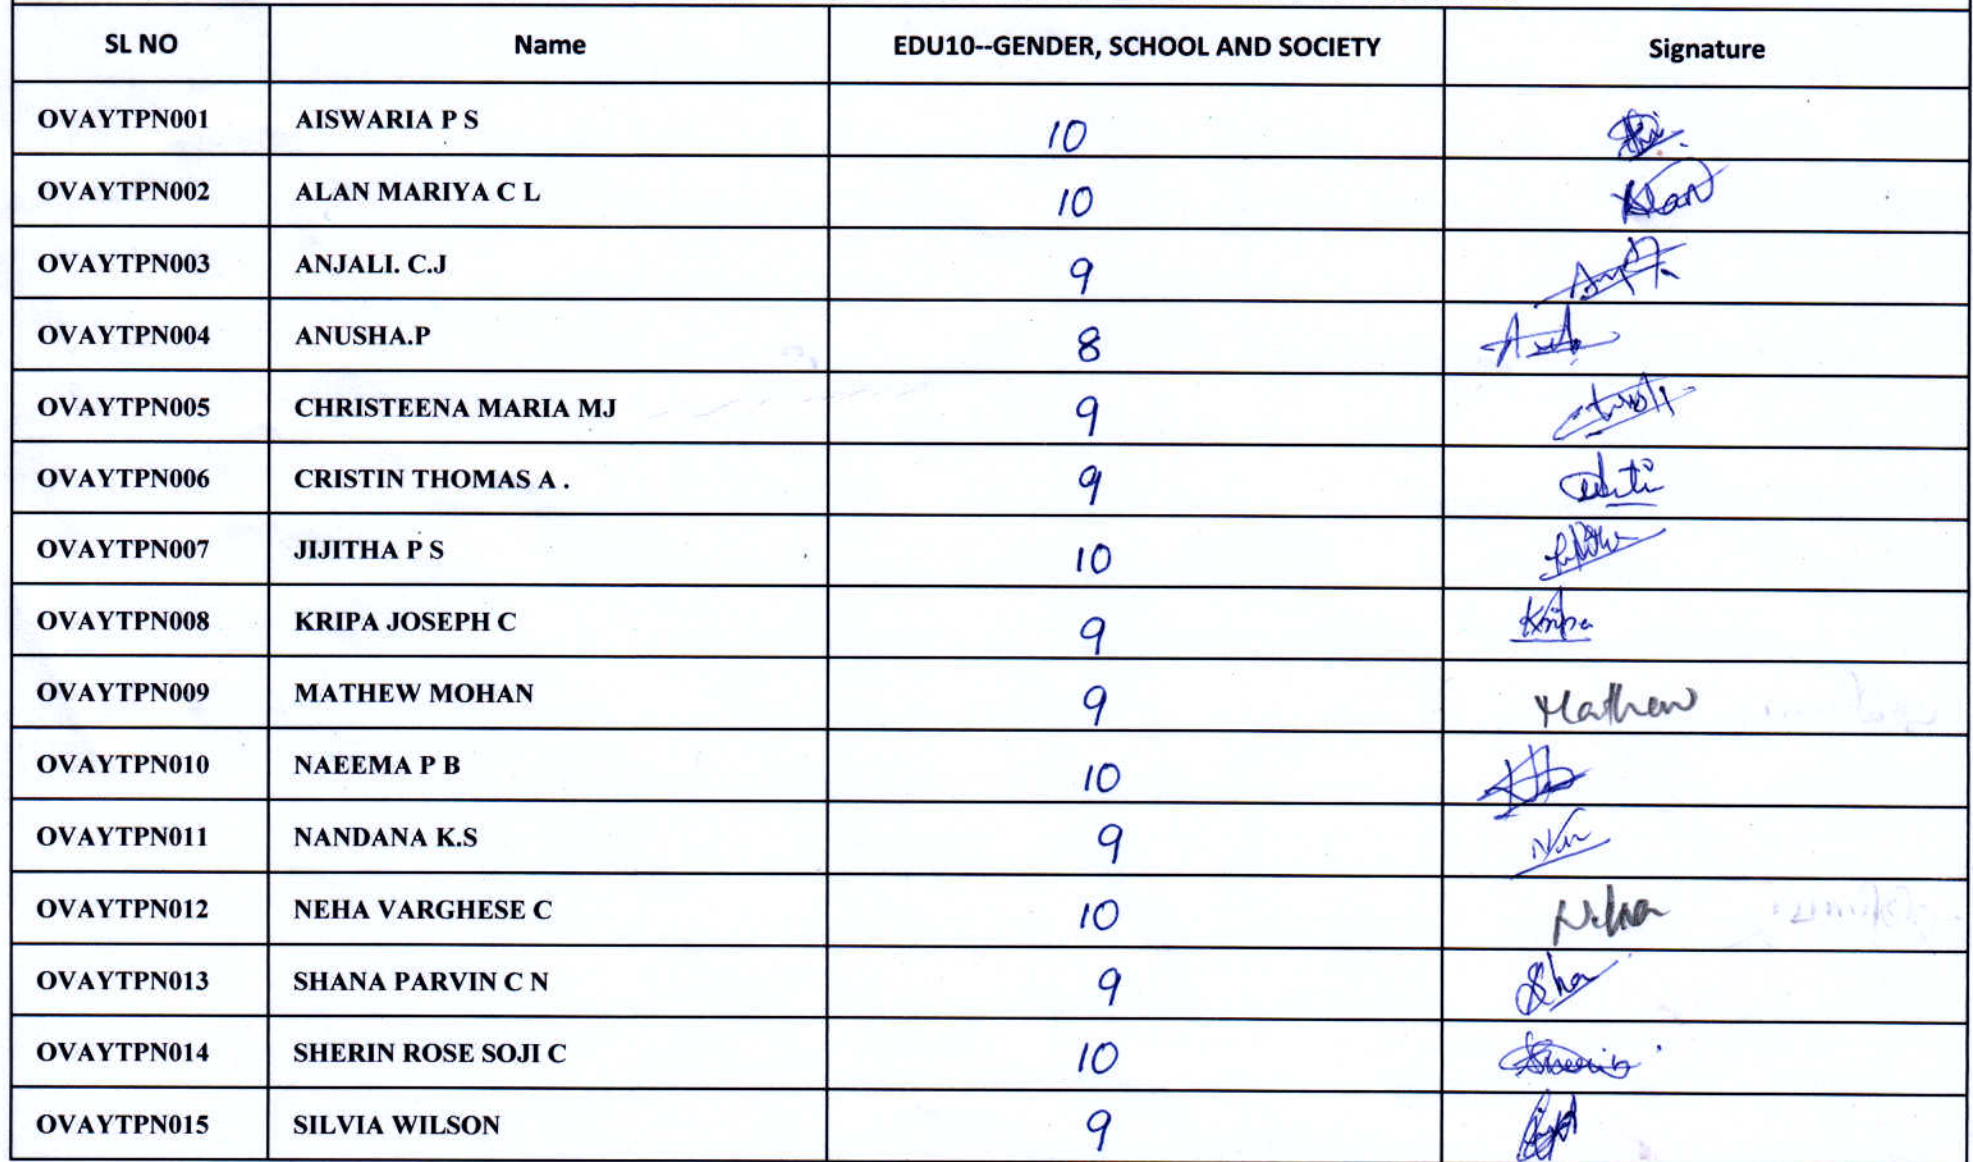 SL NO Name EDU10--GENDER, SCHOOL AND SOCIETY Signature
OVAYTPN001 AISWARIA P S 10
OVAYTPN002 ALAN MARIYA C L 10 Alan
OVAYTPN003 ANJALI. C.J 9
OVAYTPN004 ANUSHA.P 8
OVAYTPN005 CHRISTEENA MARIA MJ 9
OVAYTPN006 CRISTIN THOMAS A . 9
OVAYTPN007 JIJITHA P S 10
OVAYTPN008 KRIPA JOSEPH C 9 Kripa
OVAYTPN009 MATHEW MOHAN 9 Mathew
OVAYTPN010 NAEEMA P B 10
OVAYTPN011 NANDANA K.S 9
OVAYTPN012 NEHA VARGHESE C 10 Neha
OVAYTPN013 SHANA PARVIN C N 9 Sha
OVAYTPN014 SHERIN ROSE SOJI C 10
OVAYTPN015 SILVIA WILSON 9